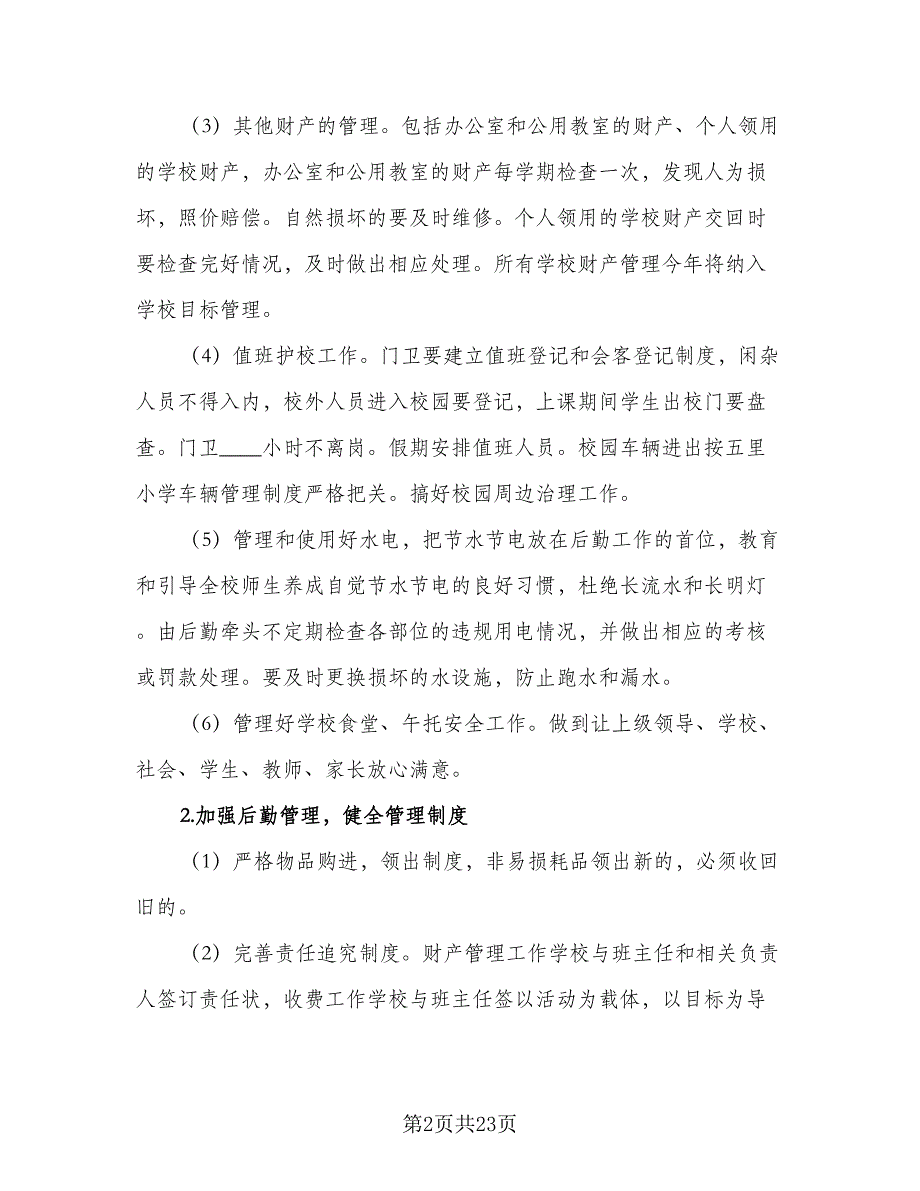 （3）其他财产的管理。包括办公室和公用教室的财产、个人领用
的学校财产，办公室和公用教室的财产每学期检查一次，发现人为损
坏，照价赔偿。自然损坏的要及时维修。个人领用的学校财产交回时
要检查完好情况，及时做出相应处理。所有学校财产管理今年将纳入
学校目标管理。
（4）值班护校工作。门卫要建立值班登记和会客登记制度，闲杂
人员不得入内，校外人员进入校园要登记，上课期间学生出校门要盘
查。门卫____小时不离岗。假期安排值班人员。校园车辆进出按五里
小学车辆管理制度严格把关。搞好校园周边治理工作。
（5）管理和使用好水电，把节水节电放在后勤工作的首位，教育
和引导全校师生养成自觉节水节电的良好习惯，杜绝长流水和长明灯
。由后勤牵头不定期检查各部位的违规用电情况，并做出相应的考核
或罚款处理。要及时更换损坏的水设施，防止跑水和漏水。
（6）管理好学校食堂、午托安全工作。做到让上级领导、学校、
社会、学生、教师、家长放心满意。
2.加强后勤管理，健全管理制度
（1）严格物品购进，领出制度，非易损耗品领出新的，必须收回
旧的。
（2）完善责任追究制度。财产管理工作学校与班主任和相关负责
人签订责任状，收费工作学校与班主任签以活动为载体，以目标为导
第2页共23页